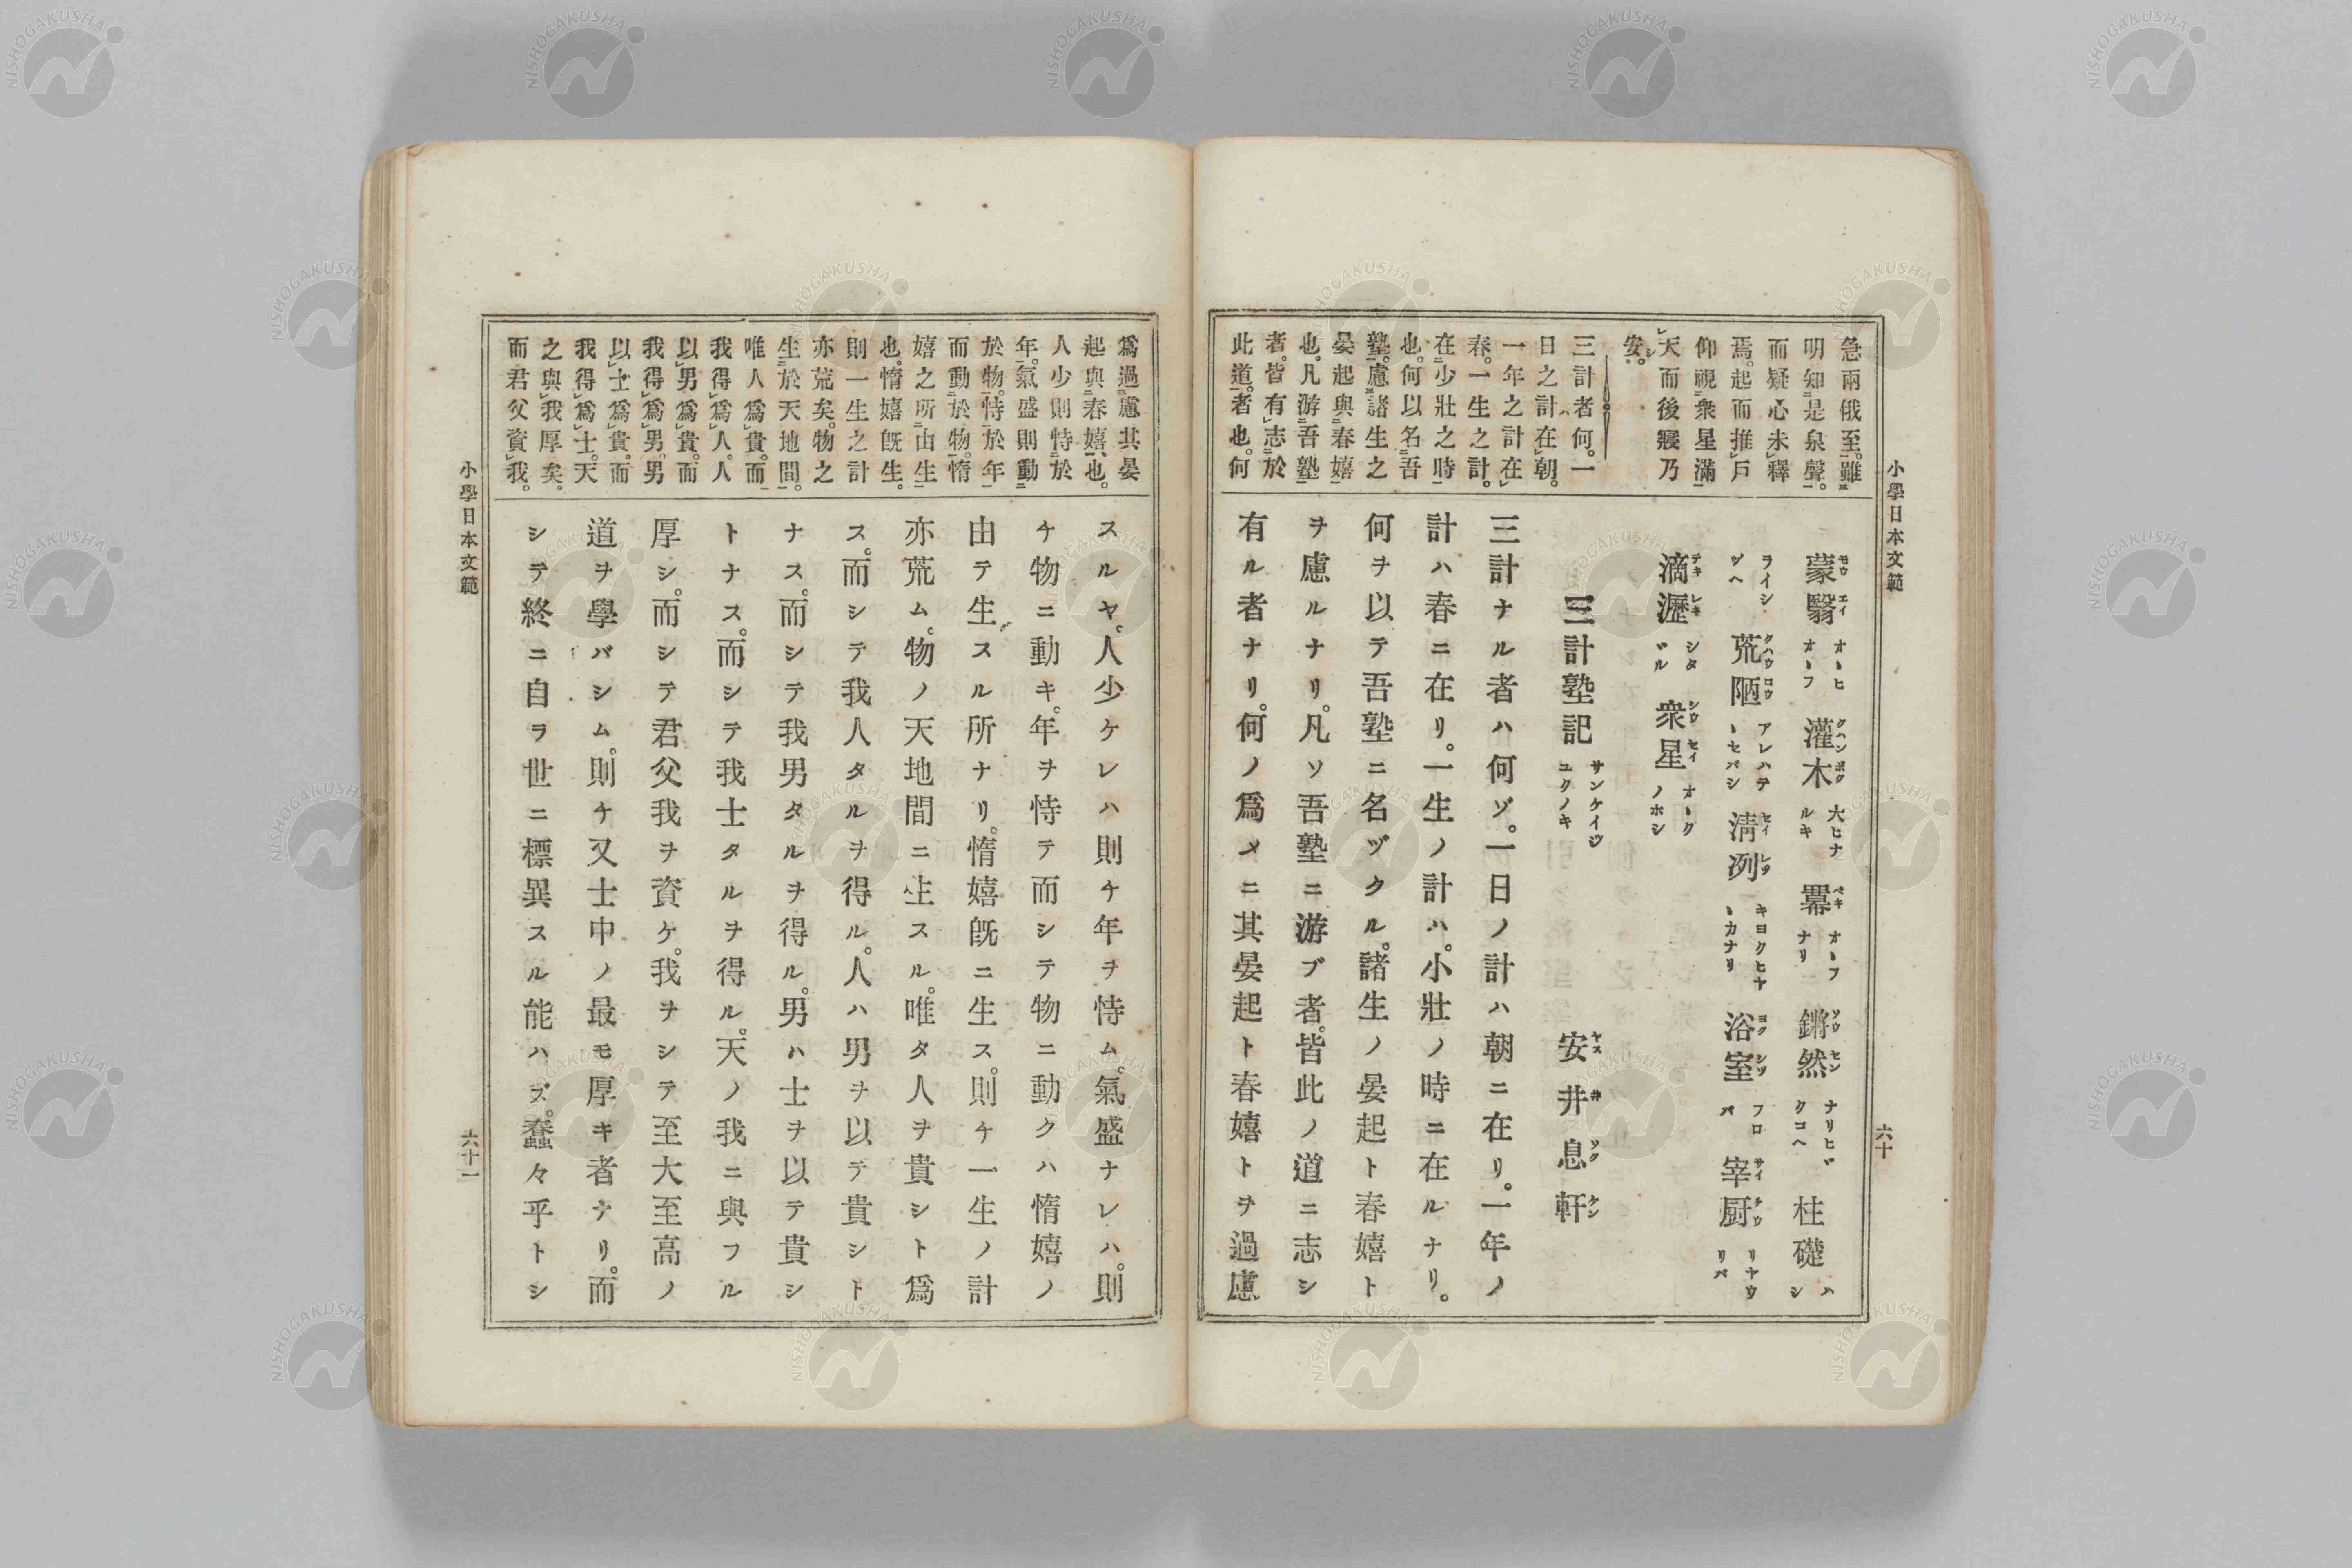 小學日本文範
六十
急雨俄至。雖
明知是泉聲。
而疑心未釋
焉。起而推戶
仰視衆星滿
天而後寢乃
安。
三計者何。一
日之計在朝。
一年之計在
春。一生之計。
在少壯之時
也。何以名吾
塾。慮諸生之
晏起與春嬉
也。凡游吾塾
者。皆有志於
此道者也。何
蒙翳 オヽヒオヽフ 灌木 大ヒナルキ 羃 オヽフナリ 鏘然 ナリヒヾクコヘ 柱礎 ハシ
ライシヅヘ 荒陋 アレハテヽセバシ 淸冽 キヨクヒヤヽカナリ 浴室 フロバ 宰厨 リヤウリバ
滴瀝 シタヾル 衆星 オヽクノホシ
三計塾記 サンケイジユクノキ 安井息軒
三計ナル者ハ何ゾ。一日ノ計ハ朝ニ在リ。一年ノ
計ハ春ニ在リ。一生ノ計ハ。小壯ノ時ニ在ルナリ。
何ヲ以テ吾塾ニ名ヅクル。諸生ノ晏起ト春嬉ト
ヲ慮ルナリ。凡ソ吾塾ニ游ブ者。皆此ノ道ニ志シ
有ル者ナリ。何ノ爲メニ其晏起ト春嬉トヲ過慮
爲過慮其晏
起與春嬉也。
人少則恃於
年。氣盛則動
於物。恃於年
而動於物。惰
嬉之所由生
也。惰嬉既生。
則一生之計
亦荒矣。物之
生於天地間。
唯人爲貴。而
我得爲人。人
以男爲貴。而
我得爲男。男
以士爲貴。而
我得爲士。天
之與我厚矣。
而君父資我。
スルヤ。人少ケレハ則チ年ヲ恃ム。氣盛ナレハ。則
チ物ニ動キ。年ヲ恃テ而シテ物ニ動クハ惰嬉ノ
由テ生スル所ナリ。惰嬉既ニ生ス。則チ一生ノ計
亦荒ム。物ノ天地間ニ生スル。唯タ人ヲ貴シト爲
ス。而シテ我人タルヲ得ル。人ハ男ヲ以テ貴シト
ナス。而シテ我男タルヲ得ル。男ハ士ヲ以テ貴シ
トナス。而シテ我士タルヲ得ル。天ノ我ニ與フル
厚シ。而シテ君父我ヲ資ケ。我ヲシテ至大至高ノ
道ヲ學バシム。則チ又士中ノ最モ厚キ者ナリ。而
シテ終ニ自ヲ世ニ標異スル能ハズ。蠢々乎トシ
小學日本文範
六十一